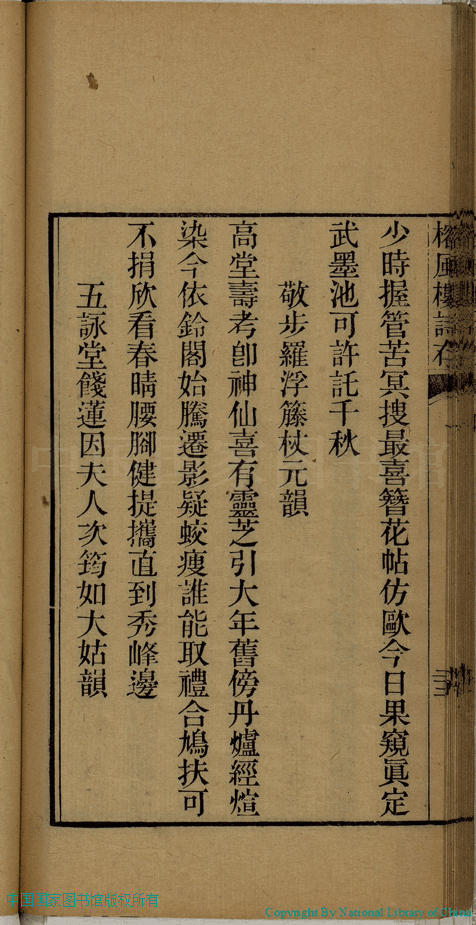 少時握管苦冥搜最喜簪花帖仿歐今日果窺眞定
武墨池可許託千秋
敬步羅浮籐杖元韻
高堂壽考卽神仙喜有靈芝引大年舊傍丹爐經煊
染今依鈴閣始騰遷影疑蛟瘦誰能取禮合鳩扶可
不捐欣看春晴腰腳健提攜直到秀峰邊
五詠堂餞蓮因夫人次筠如大姑韻
中国国家图书馆版权所有
Copyright By National Library of China